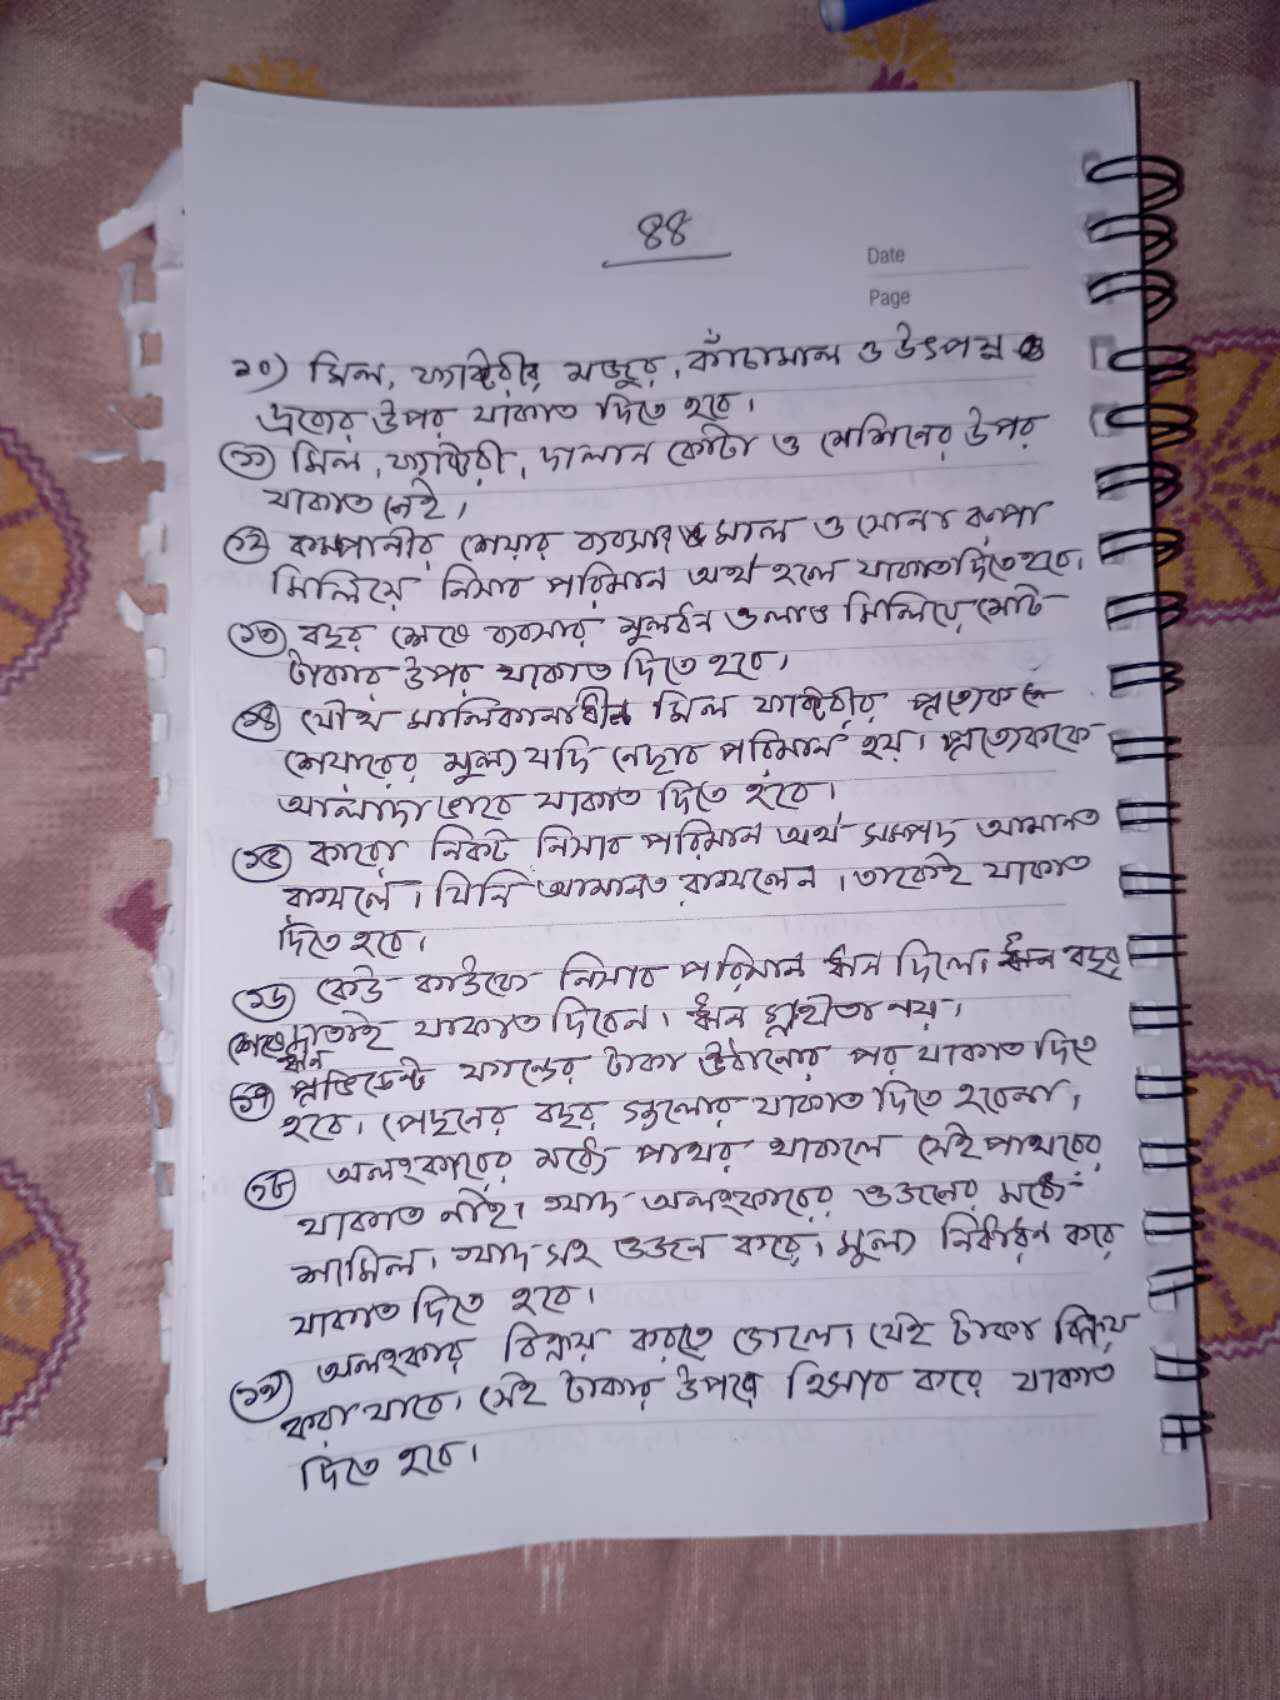 ৪৪
Date
Page
১০) মিল, ফ্যাক্টরীর মজুর, কাঁচামাল ও উৎপন্ন
দ্রব্যের উপর যাকাত দিতে হবে।
১১) মিল, ফ্যাক্টরী, দালান কোটা ও মেশিনের উপর
যাকাত নেই।
১২) কম্পানীর শেয়ার ব্যবসার মাল ও সোনা রূপা
মিলিয়ে নিসাব পরিমান অর্থ হলে যাকাত দিতে হবে।
১৩) বছর শেষে ব্যবসার মুলধন ও লাভ মিলিয়ে মোট
টাকার উপর যাকাত দিতে হবে।
১৪) যৌথ মালিকানাধীন মিল ফ্যাক্টরীর প্রত্যেকের
শেয়ারের মুল্য যদি নেছাব পরিমান হয়। প্রত্যেককে
আলাদা ভাবে যাকাত দিতে হবে।
১৫) কারো নিকট নিসাব পরিমান অর্থ সম্পদ আমানত
রাখলে। যিনি আমানত রাখলেন, তাকেই যাকাত
দিতে হবে।
১৬) কেউ কাউকে নিসাব পরিমান ঋন দিলে। ঋন বছর
শেষে ঋন দাতাই যাকাত দিবেন। ঋন গ্রহীতা নয়।
১৭) প্রভিডেন্ট ফান্ডের টাকা উঠানোর পর যাকাত দিতে
হবে। পেছনের বছর গুলোর যাকাত দিতে হবেনা।
১৮) অলংকারের মধ্যে পাথর থাকলে সেই পাথরের
যাকাত নাই। খাদ অলংকারের ওজনের মধ্যে
শামিল। খাদ সহ ওজন করে। মুল্য নির্ধারন করে
যাকাত দিতে হবে।
১৯) অলংকার বিক্রয় করতে গেলে। যেই টাকা বিক্রয়
করা যাবে। সেই টাকার উপরে হিসাব করে যাকাত
দিতে হবে।